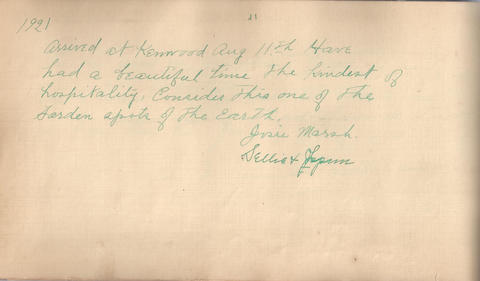 1921
11
Arrived at Kenwood Aug 11th Have
had a beautiful time The kindest of
hospitality, Consider This one of The
Garden spots of The Earth.
Josie Marsh.